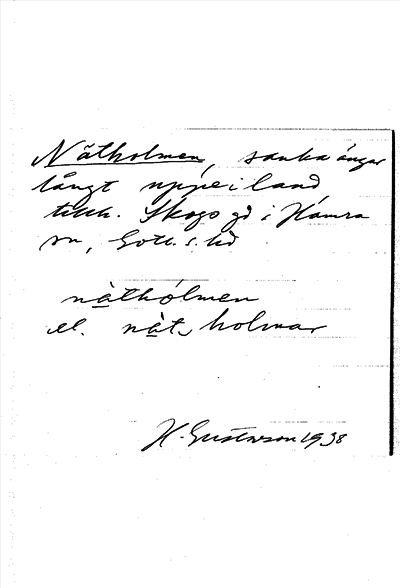 Nätholmen, sanka ängar
långt uppe i land
tillh. Skogs gd i Hamra
sn, Gotl. s. hd
nàthólmen
el. nàt, holmar
H. Gustavson 1938